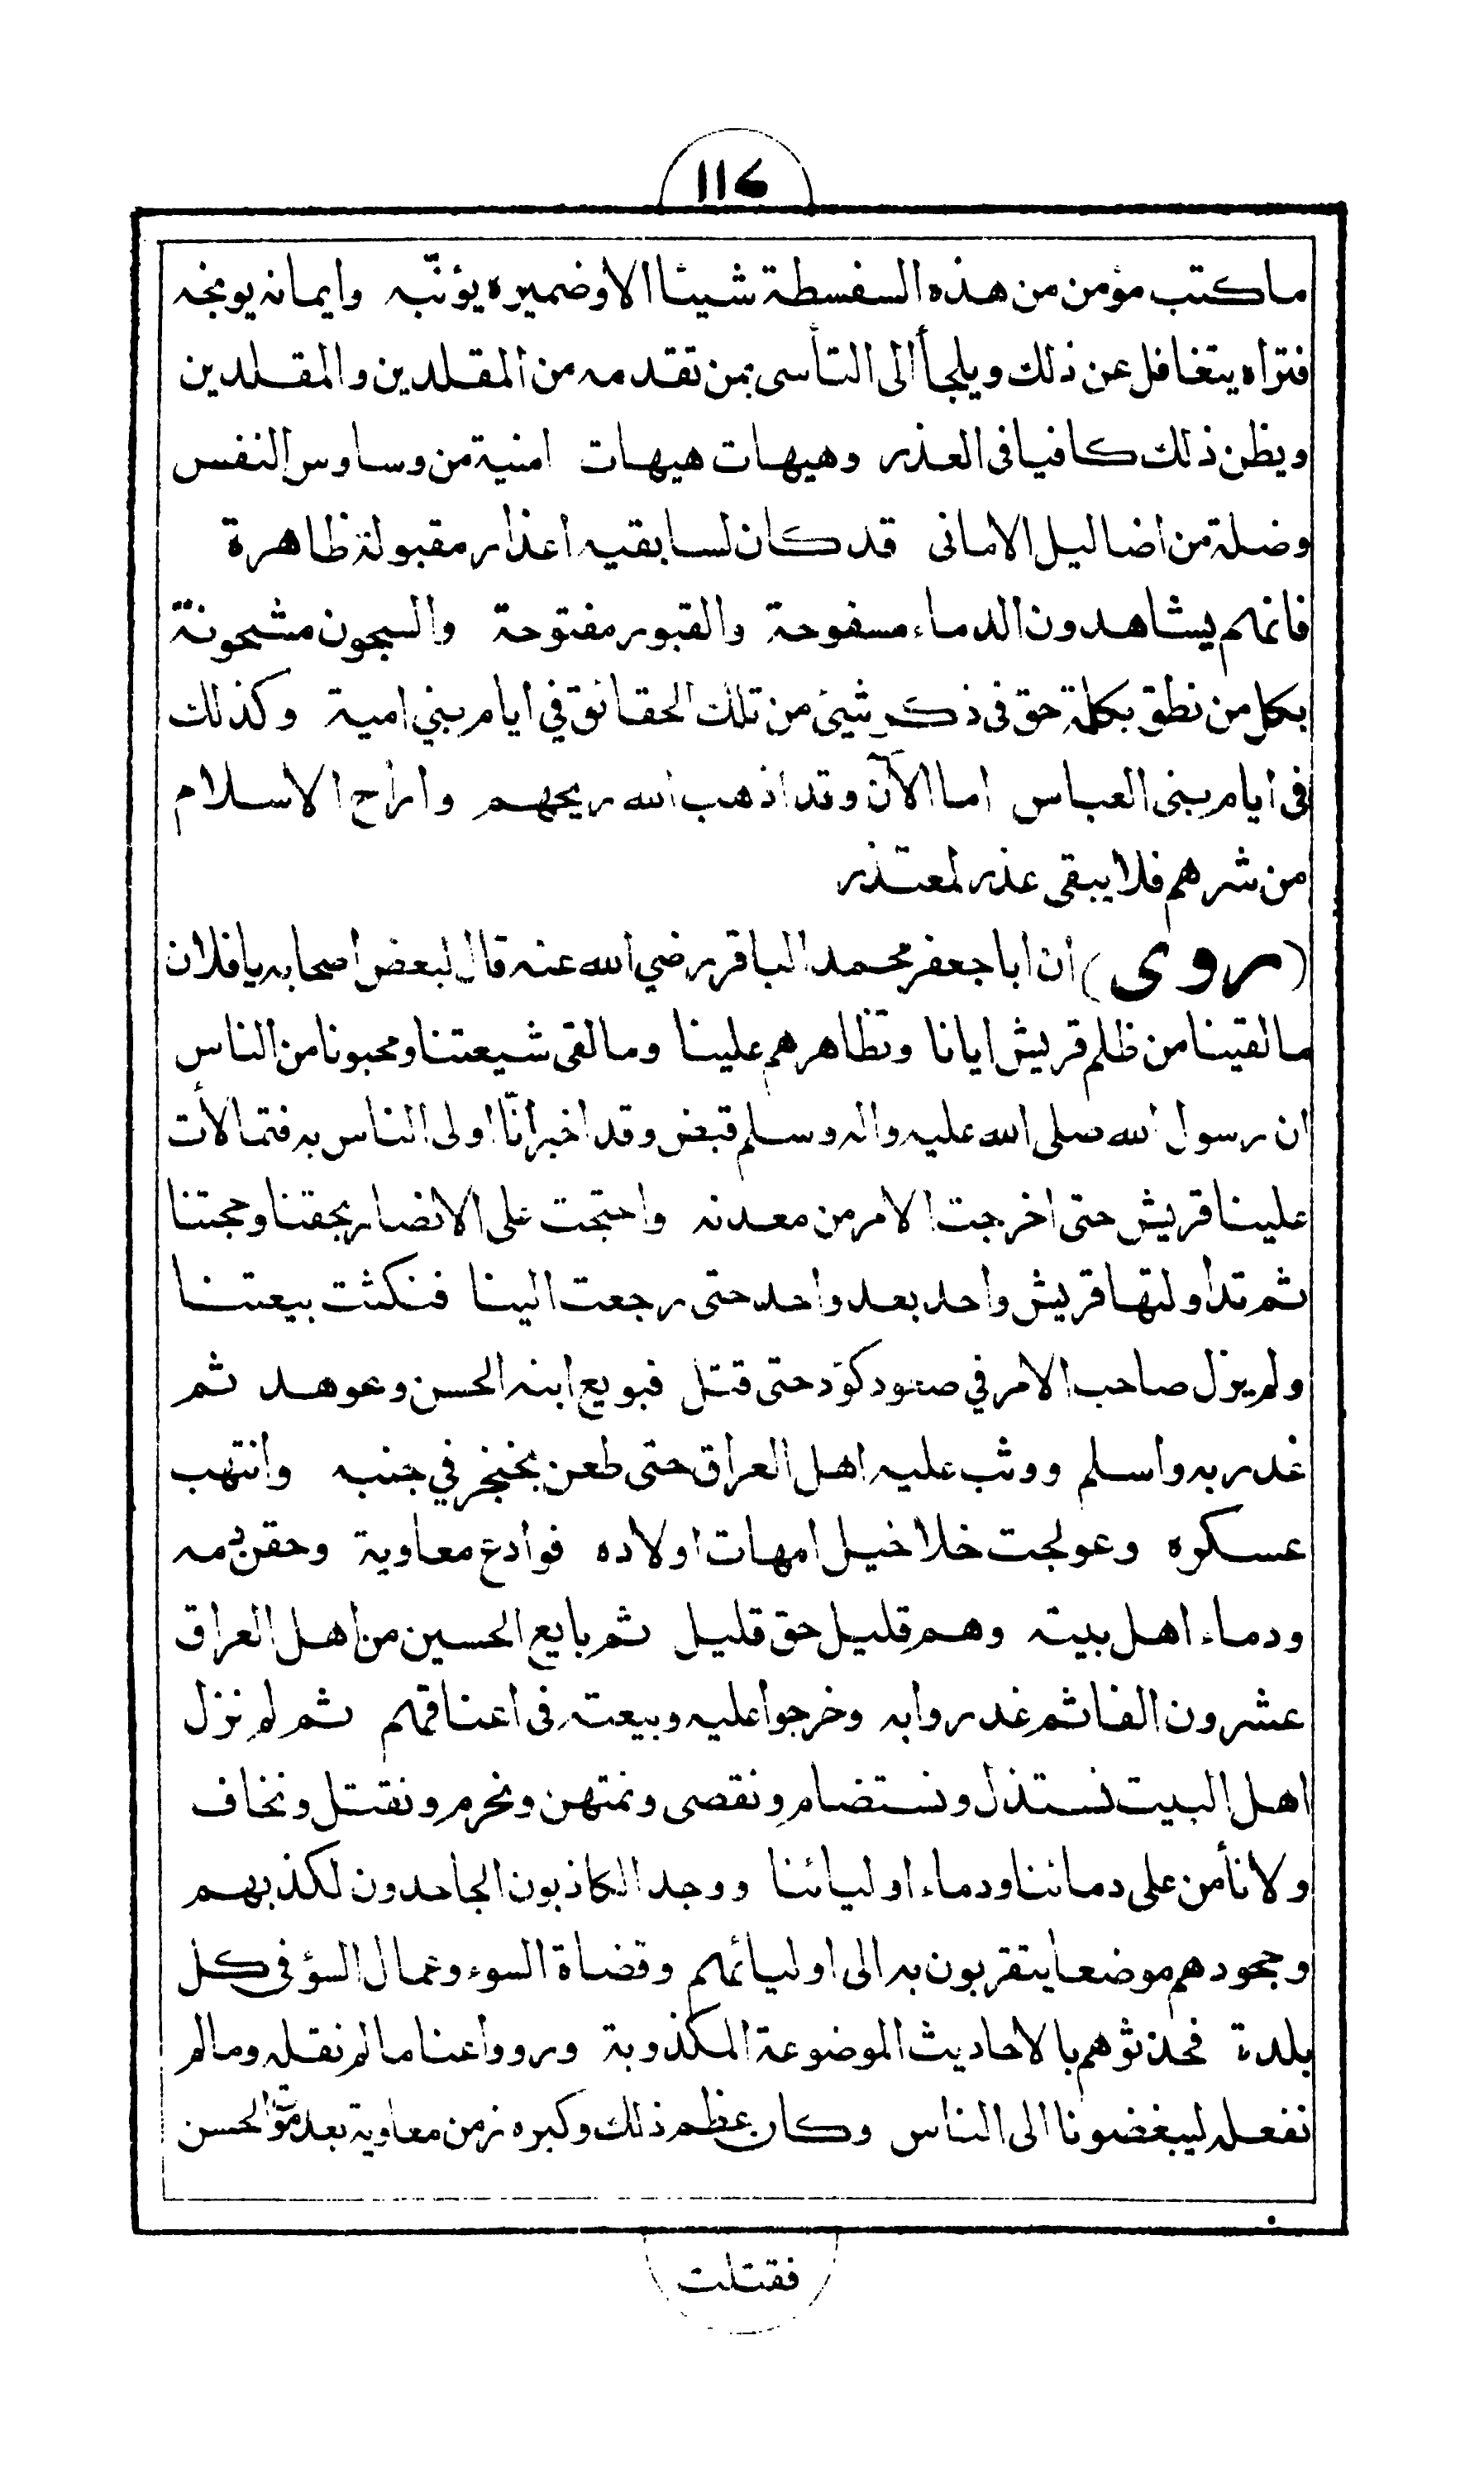 ١١٤
ما كتب مؤمن من هذه السفسطة شيئا الا وضميره يؤنّبه وايمانه يوبخه
فتراه يتغافل عن ذلك ويلجأ الى التأسى بمن تقدمه من المقلدين والمقلدين
ويظن ذلك كافيا فى العذر وهيهات هيهات امنية من وساوس النفس
وضلة من اضاليل الامانى قد كان لسابقيه اعذار مقبولة ظاهرة
فانهم يشاهدون الدماء مسفوحة والقبور مفتوحة والسجون مشحونة
بكل من نطق بكلمة حق فى ذكر شيئ من تلك الحقائق في ايام بني امية وكذلك
فى ايام بنى العباس اما الآن وقد اذهب الله ريحهم واراح الاسلام
من شرهم فلا يبقى عذر لمعتذر
(روى) ان ابا جعفر محمد الباقر رضي الله عنه قال لبعض اصحابه يا فلان
ما لقينا من ظلم قريش ايانا وتظاهرهم علينا وما لقى شيعتنا ومحبونا من الناس
ان رسول الله صلى الله عليه واله وسلم قبض وقد اخبر انّا اولى الناس به فتمالأت
علينا قريش حتى اخرجت الامر من معدنه واحتجت على الانصار بحقنا وحجتنا
ثم تداولتها قريش واحد بعد واحد حتى رجعت الينا فنكثت بيعتنا
ولم يزل صاحب الامر في صعود كؤد حتى قتل فبويع ابنه الحسن وعوهد ثم
غدر به واسلم ووثب عليه اهل العراق حتى طعن بخنجر في جنبه وانتهب
عسكره وعولجت خلاخيل امهات اولاده فوادع معاوية وحقن دمه
ودماء اهل بيته وهم قليل حق قليل ثم بايع الحسين من اهل العراق
عشرون الفا ثم غدروا به وخرجوا عليه وبيعته فى اعناقهم ثم لم نزل
اهل البيت نستذل ونستضام ونقصى ونمتهن ونحرم ونقتل ونخاف
ولا نأمن على دمائنا ودماء اوليائنا ووجد الكاذبون الجاحدون لكذبهم
وجحودهم موضعا يتقربون به الى اوليائهم وقضاة السوء وعمال السؤ فى كل
بلدة فحدثوهم بالاحاديث الموضوعة المكذوبة ورووا عنا ما لم نقله وما لم
نفعله ليبغضونا الى الناس وكان عظم ذلك وكبره زمن معاوية بعد موت الحسن
فقتلت